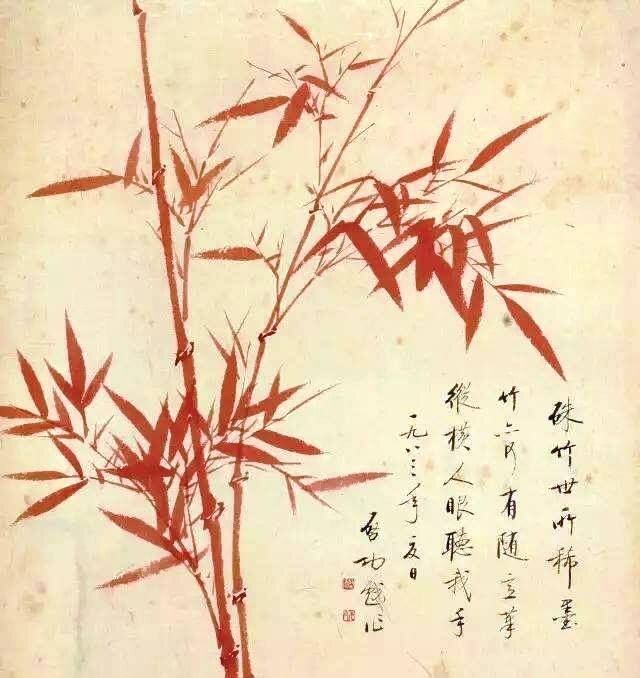 硃竹世所稀墨
竹亦何有随意筆
縱橫人眼聽我手
一九八三年夏日
启功戲作